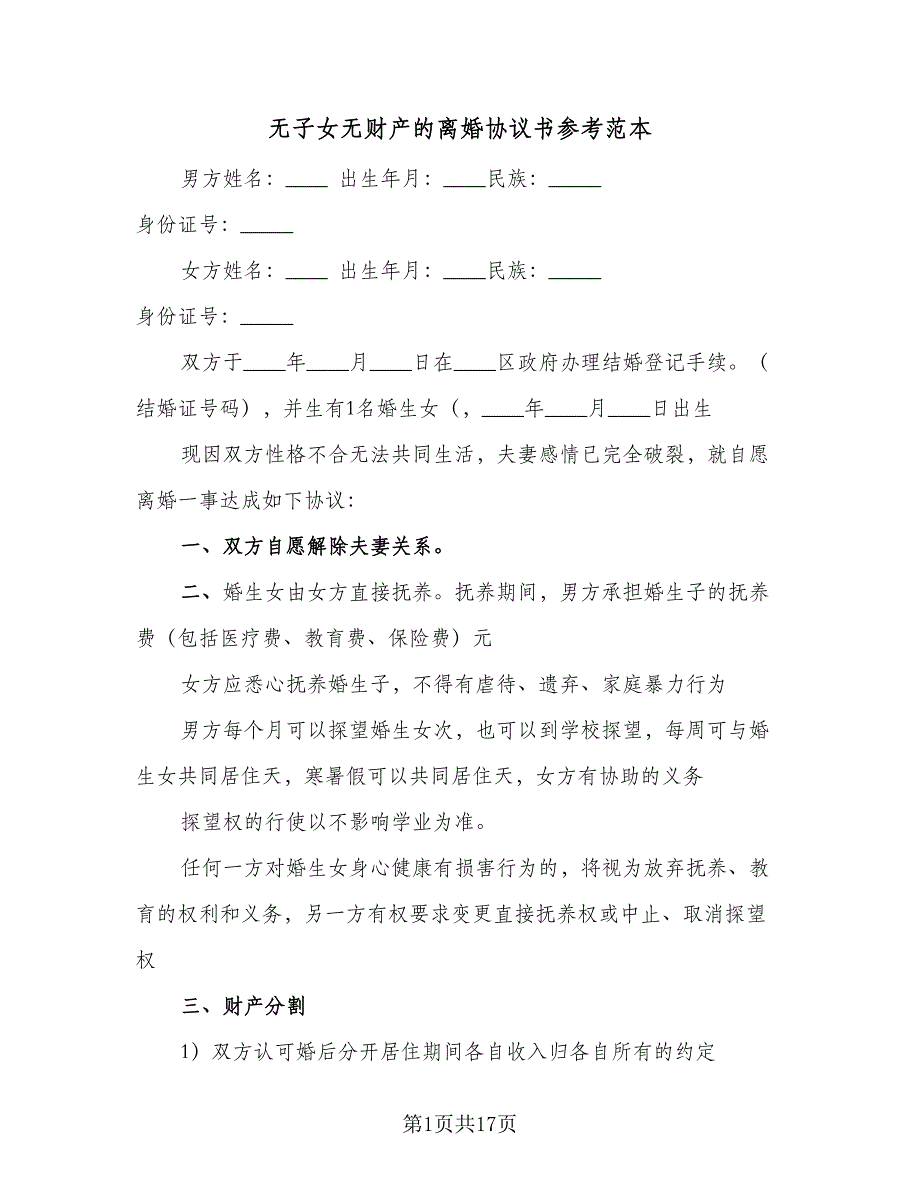 无子女无财产的离婚协议书参考范本
男方姓名：____ 出生年月：____民族：_____
身份证号：_____
女方姓名：____ 出生年月：____民族：_____
身份证号：_____
双方于____年____月____日在____区政府办理结婚登记手续。（
结婚证号码），并生有1名婚生女（，____年____月____日出生
现因双方性格不合无法共同生活，夫妻感情已完全破裂，就自愿
离婚一事达成如下协议：
一、双方自愿解除夫妻关系。
二、婚生女由女方直接抚养。抚养期间，男方承担婚生子的抚养
费（包括医疗费、教育费、保险费）元
女方应悉心抚养婚生子，不得有虐待、遗弃、家庭暴力行为
男方每个月可以探望婚生女次，也可以到学校探望，每周可与婚
生女共同居住天，寒暑假可以共同居住天，女方有协助的义务
探望权的行使以不影响学业为准。
任何一方对婚生女身心健康有损害行为的，将视为放弃抚养、教
育的权利和义务，另一方有权要求变更直接抚养权或中止、取消探望
权
三、财产分割
1）双方认可婚后分开居住期间各自收入归各自所有的约定
第1页共17页